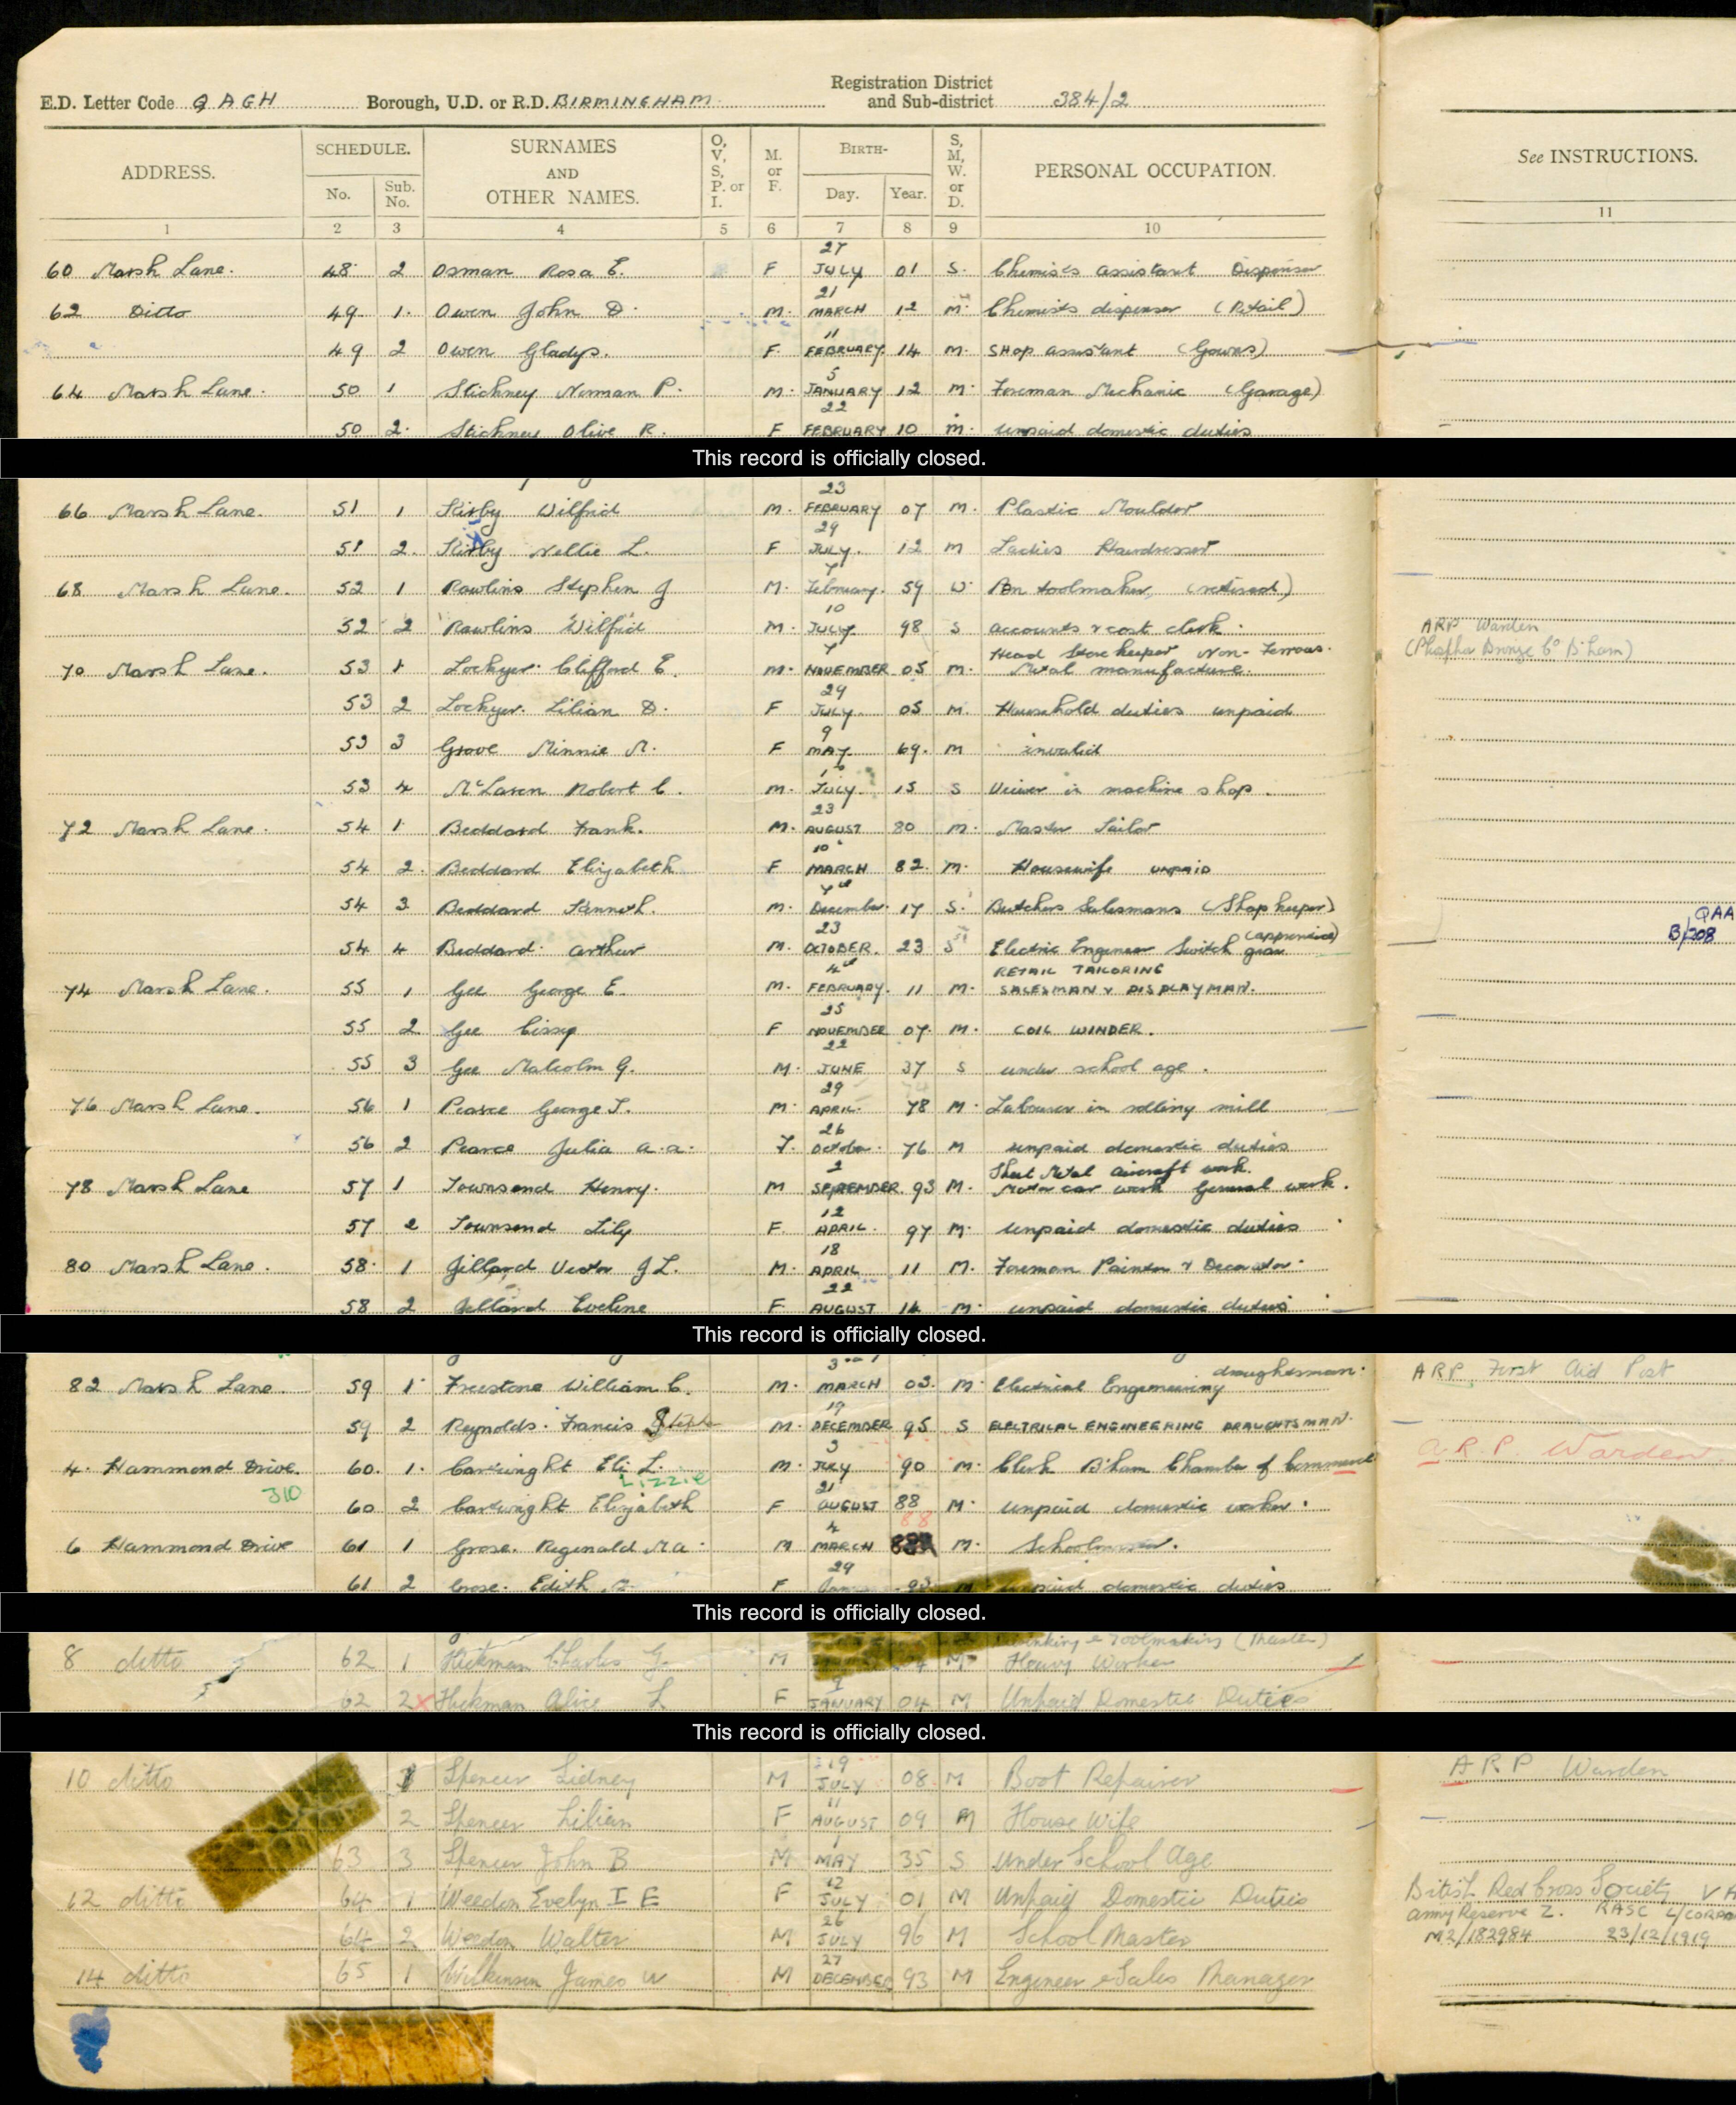 Registration District
E.D. Letter Code QAGH Borough, U.D. or R.D. BIRMINGHAM and Sub-district 384/2
ADDRESS. SCHEDULE. No. Sub. No. SURNAMES AND OTHER NAMES. O, V, S, P. or I. M. or F. BIRTH- Day. Year. S, M, W. or D. PERSONAL OCCUPATION. See INSTRUCTIONS.
1 2 3 4 5 6 7 8 9 10 11
60 Marsh Lane. 48 2 Osman Rosa E. F 27 JULY 01 S. Chemists assistant Dispenser
62 Ditto 49 1. Owen John D. M. 21 MARCH 12 M. Chemists dispenser (Retail)
49 2 Owen Gladys. F. 11 FEBRUARY 14 M. SHop assistant (Gowns)
64 Marsh Lane. 50 1 Stichney Norman P. M. 5 JANUARY 12 M. Foreman Mechanic (Garage)
50 2. Stichney Olive R. F 22 FEBRUARY 10 M. unpaid domestic duties
This record is officially closed.
66 Marsh Lane. 51 1 Kirby Wilfrid M. 23 FEBRUARY 07 M. Plastic Moulder
51 2. Kirby Nellie L. F 29 JULY. 12 M Ladies Hairdresser
68 Marsh Lane. 52 1 Rawlins Stephen J M. 7 February. 59 W Pen toolmaker, (retired)
52 2 Rawlins Wilfrid M. 10 JULY 98 S accounts & cost clerk. ARP Warden
70 Marsh Lane. 53 1 Lockyer. Clifford E. M. 7 NOVEMBER 05 M. Head Storekeeper Non-Ferrous. Metal manufacture. (Phosphor Bronze Co B'ham)
53 2 Lockyer. Lilian D. F 29 JULY. 05 M. Household duties unpaid
53 3 Grove Minnie M. F 9 MAY. 69. M invalid
53 4 McLaren Robert C. M. July. 15 S Viewer in machine shop.
72 Marsh Lane. 54 1 Beddard Frank. M. 23 AUGUST 80 M. Master Tailor
54 2. Beddard Elizabeth F 10 MARCH 82. M. Housewife UNPAID
54 3 Beddard Kenneth. M. 7th December. 17 S. Butchers Salesmans (Shop keeper) QAA
54 4 Beddard. Arthur M. 23 OCTOBER. 23 S Electric Engineer Switch gear (apprentice) B/208
74 Marsh Lane. 55 1 Gee George E. M. 4th FEBRUARY. 11 M. RETAIL TAILORING SALESMAN & DISPLAYMAN.
55 2 Gee Cissy F 25 NOVEMBER 07. M. COIL WINDER.
55 3 Gee Malcolm G. M. 22 JUNE 37 S under school age.
76 Marsh Lane. 56 1 Pearce George T. M. 29 APRIL. 78 M. Labourer in rolling mill
56 2 Pearce Julia A.A. F. 26 October. 76 M unpaid domestic duties
78 Marsh Lane 57 1 Townsend Henry. M 2 SEPTEMBER. 93 M. Sheet Metal aircraft work. Motor car work General work.
57 2 Townsend Lily F. 12 APRIL. 97 M. unpaid domestic duties
80 Marsh Lane. 58. 1 Jillard Victor J L. M. 18 APRIL 11 M. Foreman Painter & Decorator.
58 2 Jellard Eveline F 22 AUGUST 14 M. unpaid domestic duties
This record is officially closed.
82 Marsh Lane. 59 1 Freestone William C. M. 3 MARCH 03. M. Electrical Engineering draughtsman. ARP First Aid Post
59 2 Reynolds. Francis M. 19 DECEMBER 95 S ELECTRICAL ENGINEERING DRAUGHTSMAN.
4. Hammond Drive. 60. 1. Cartwright Eli L. M. 3 JULY 90 M. Clerk B'ham Chamber of Commerce A.R.P. Warden
J10 60 2 Cartwright Lizzie Elizabeth F 21 AUGUST 88 M. unpaid domestic worker.
88
6 Hammond Drive 61 1 Grose. Reginald M. 4 MARCH M. Schoolmaster.
61 2 Grose. Edith F 29 Jan 93 M unpaid domestic duties
This record is officially closed.
8 ditto 62 1 Hickman Charles G. M 4 M Toolmaking (Master) Heavy Worker
62 2 Hickman Alice L F 9 JANUARY 04 M Unpaid Domestic Duties
This record is officially closed.
10 ditto 1 Spencer Sidney M 19 JULY 08 M Boot Repairer ARP Warden
2 Spencer Lilian F 11 AUGUST 09 M House Wife
63 3 Spencer John B M 1 MAY 35 S Under School Age
12 ditto 64 1 Weedon Evelyn I E F 12 JULY 01 M Unpaid Domestic Duties British Red Cross Society VA
64 2 Weedon Walter M 26 JULY 96 M School Master Army Reserve Z. RASC L/CORP
M2/182984 23/12/1919
14 ditto 65 1 Wilkinson James W M 27 DECEMBER 93 M Engineer & Sales Manager